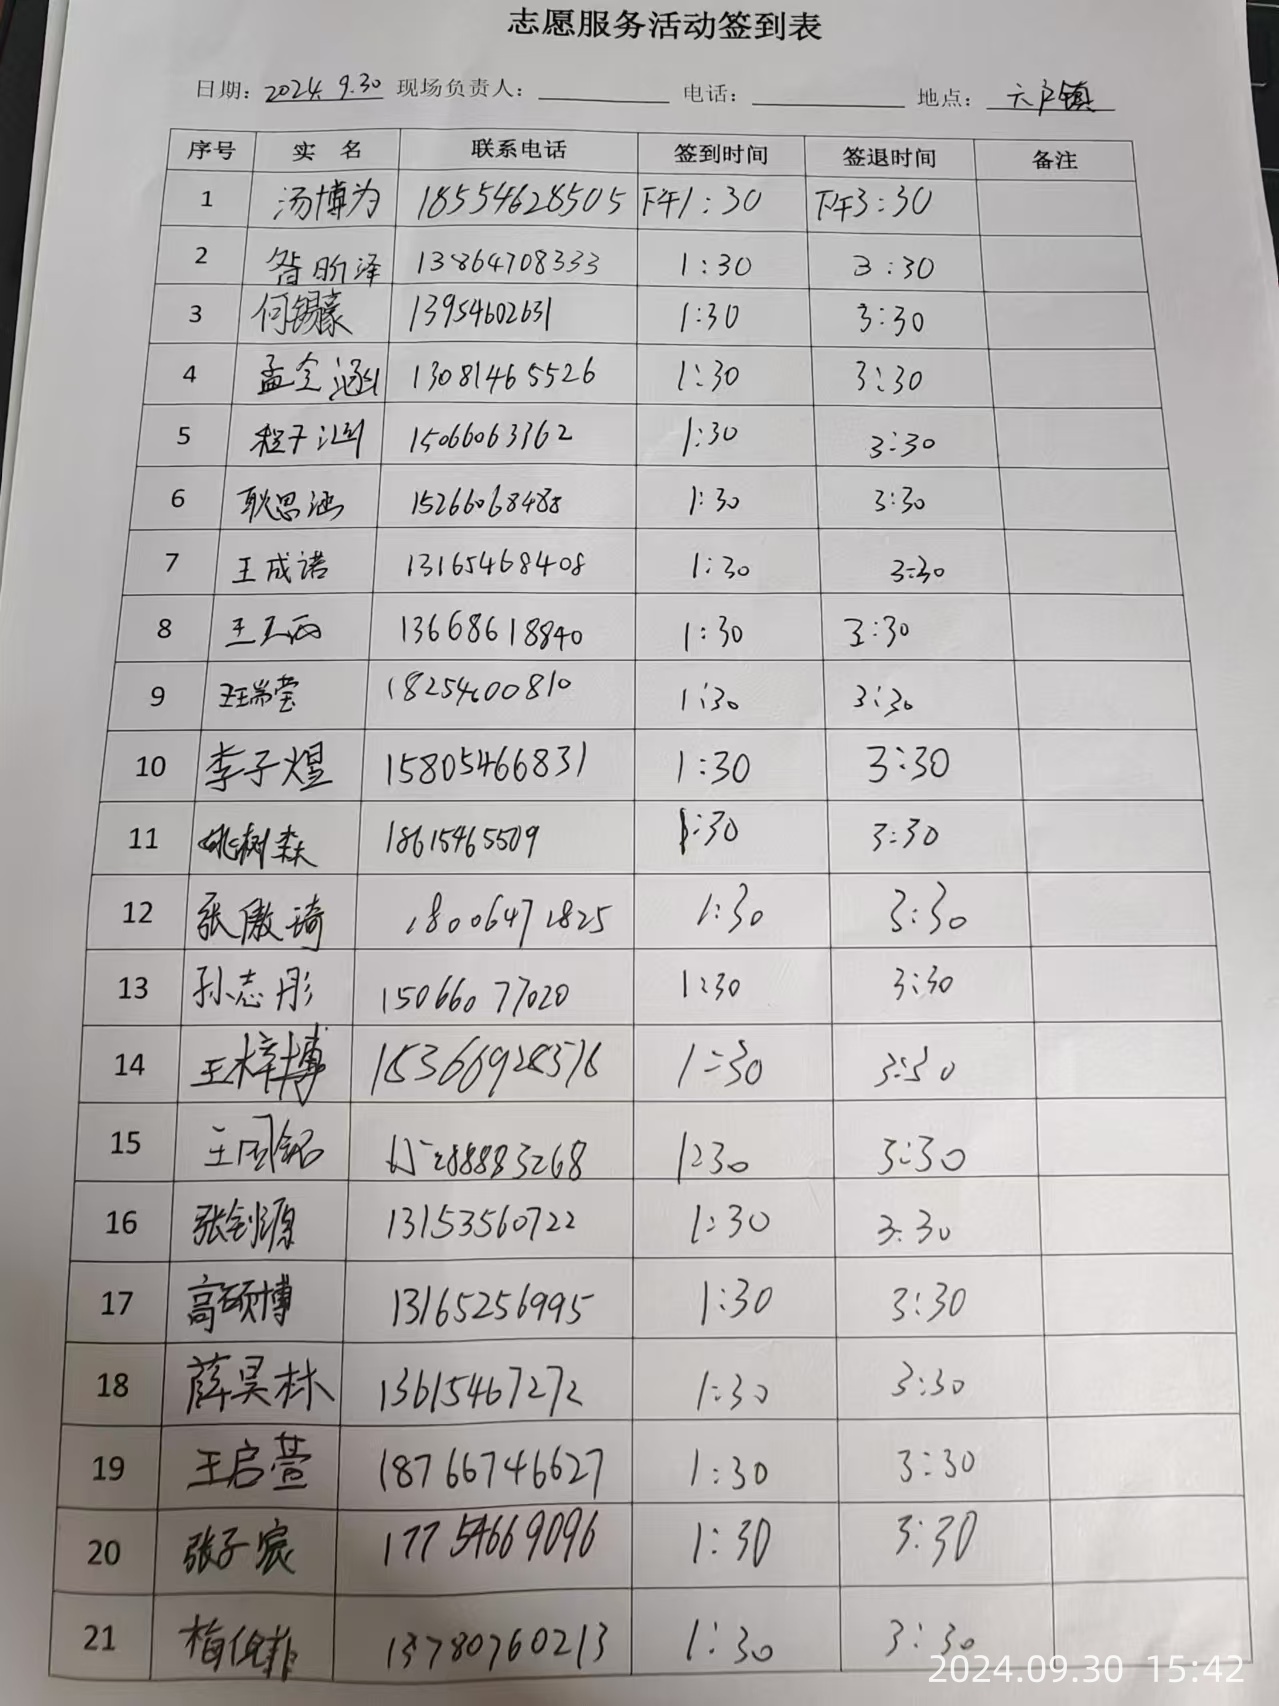 志愿服务活动签到表
日期：2024.9.30 现场负责人： 电话： 地点：六户镇
序号 实 名 联系电话 签到时间 签退时间 备注
1 汤博为 18554628505 下午1:30 下午3:30
2 昝昕泽 13864708333 1:30 3:30
3 何锡豪 13954602631 1:30 3:30
4 孟令涵 13081465526 1:30 3:30
5 程子 15066063362 1:30 3:30
6 耿思涵 15266068488 1:30 3:30
7 王成诺 13165468408 1:30 3:30
8 王 13668618840 1:30 3:30
9 王瑞莹 18254600810 1:30 3:30
10 李子煜 15805466831 1:30 3:30
11 姚树森 18615465509 1:30 3:30
12 张傲琦 18006471825 1:30 3:30
13 孙志彤 15066077020 1:30 3:30
14 王梓博 1:30 3:30
15 王 1:30 3:30
16 张钊源 13153560722 1:30 3:30
17 高硕博 13165256995 1:30 3:30
18 薛昊林 13615467272 1:30 3:30
19 王启萱 18766746627 1:30 3:30
20 张子宸 17754669096 1:30 3:30
21 梅 13780760213 1:30 3:30
2024.09.30 15:42